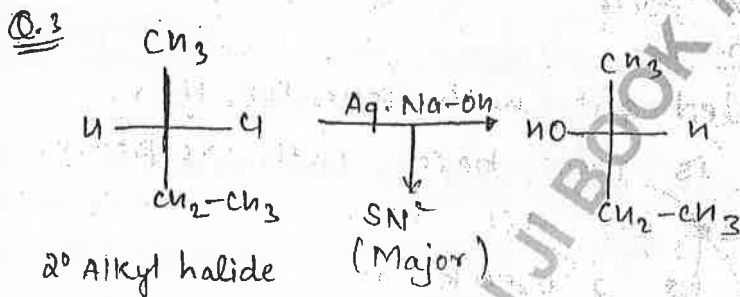 Q.3
CH3
H Cl
CH2-CH3
2° Alkyl halide
Aq. Na-OH
SN2
(Major)
CH3
HO H
CH2-CH3
JI BOOK